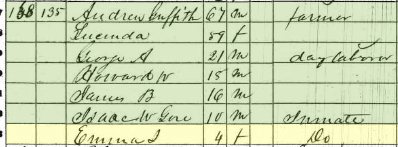 138 135 Andrew Griffith 67 m farmer
Lucinda 59 f
George A 21 m day laborer
Howard W 15 m
James B 16 m
Isaac W Gore 10 m Inmate
Emma I 4 f Do